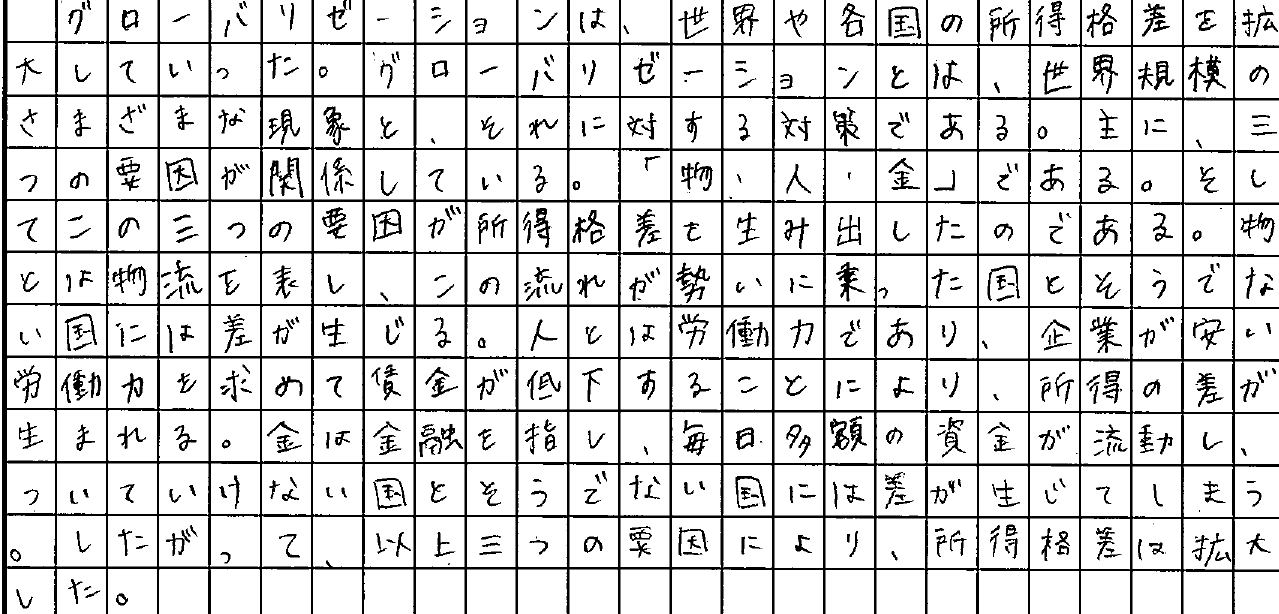 グローバリゼーションは、世界や各国の所得格差を拡
大していった。グローバリゼーションとは、世界規模の
さまざまな現象と、それに対する対策である。主に、三
つの要因が関係している。「物・人・金」である。そし
てこの三つの要因が所得格差を生み出したのである。物
とは物流を表し、この流れが勢いに乗った国とそうでな
い国には差が生じる。人とは労働力であり、企業が安い
労働力を求めて賃金が低下することにより、所得の差が
生まれる。金は金融を指し、毎日多額の資金が流動し、
ついていけない国とそうでない国には差が生じてしまう
。したがって、以上三つの要因により、所得格差は拡大
した。